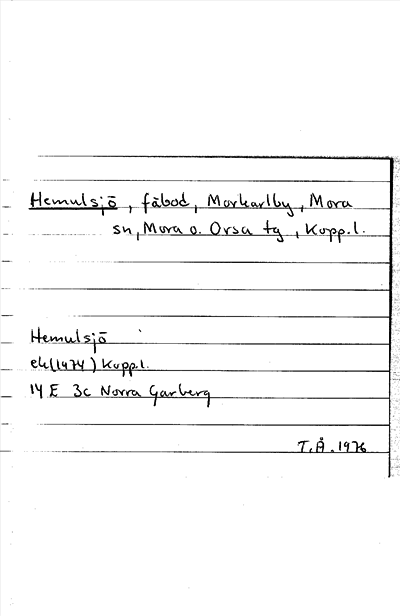 Hemulsjö, fäbod, Morkarlby, Mora
sn, Mora o. Orsa tg, Kopp.l.
Hemulsjö
ek(1974) Kopp.l.
14 E 3c Norra Garberg
T.Å. 1976